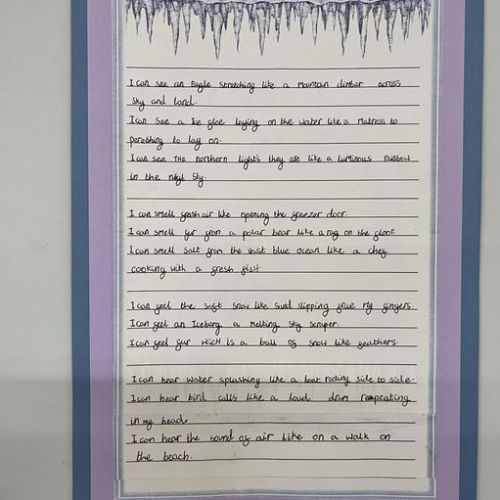 I can see an Eagle Stretching like a mountain climber across
sky and land.
I can see a Ice gloe laying on the water like a matress to
I can see THe northern lights they are like a luminous rainbow
in the nigh Sky.
I can smell fresh air like opening the freezer door.
I can smell fur from a polar bear like a rug on the floor
I can smell salt from the vast blue ocean like a chef
cooking with a fresh fish
I can feel the soft snow like sand slipping frue my fingers.
I can feel an Iceberg a melting sky scraper.
I can feel fur wicH is a ball of snow like feathers.
I can hear water splashing like a boat rocking side to side.
I can hear bird calls like a loud drum repeating
in my head.
I can hear the sound of air like on a walk on
the beach.